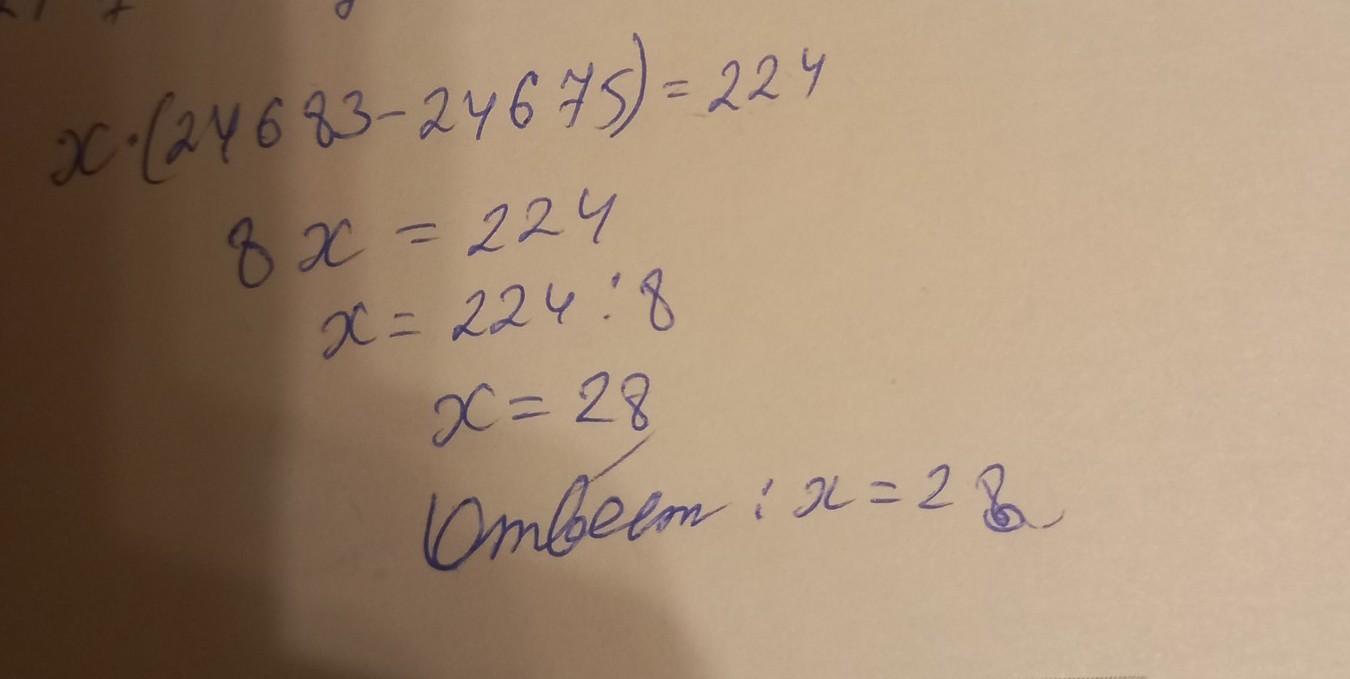 x·(24683-24675)=224
8x = 224
x= 224:8
x= 28
Ответ: x=28